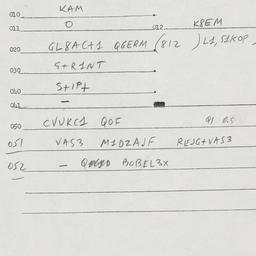 010 KAM
011 O 012 K8EM
020 GL8AC+1 QGERM (812 ) L1, S1KOP
030 S+R1NT
040 S+1P+
041 —
050 CVUKC1 QOF
051 VAS3 M1DZAJF REJG+VAS3
052 — BOBEL3X